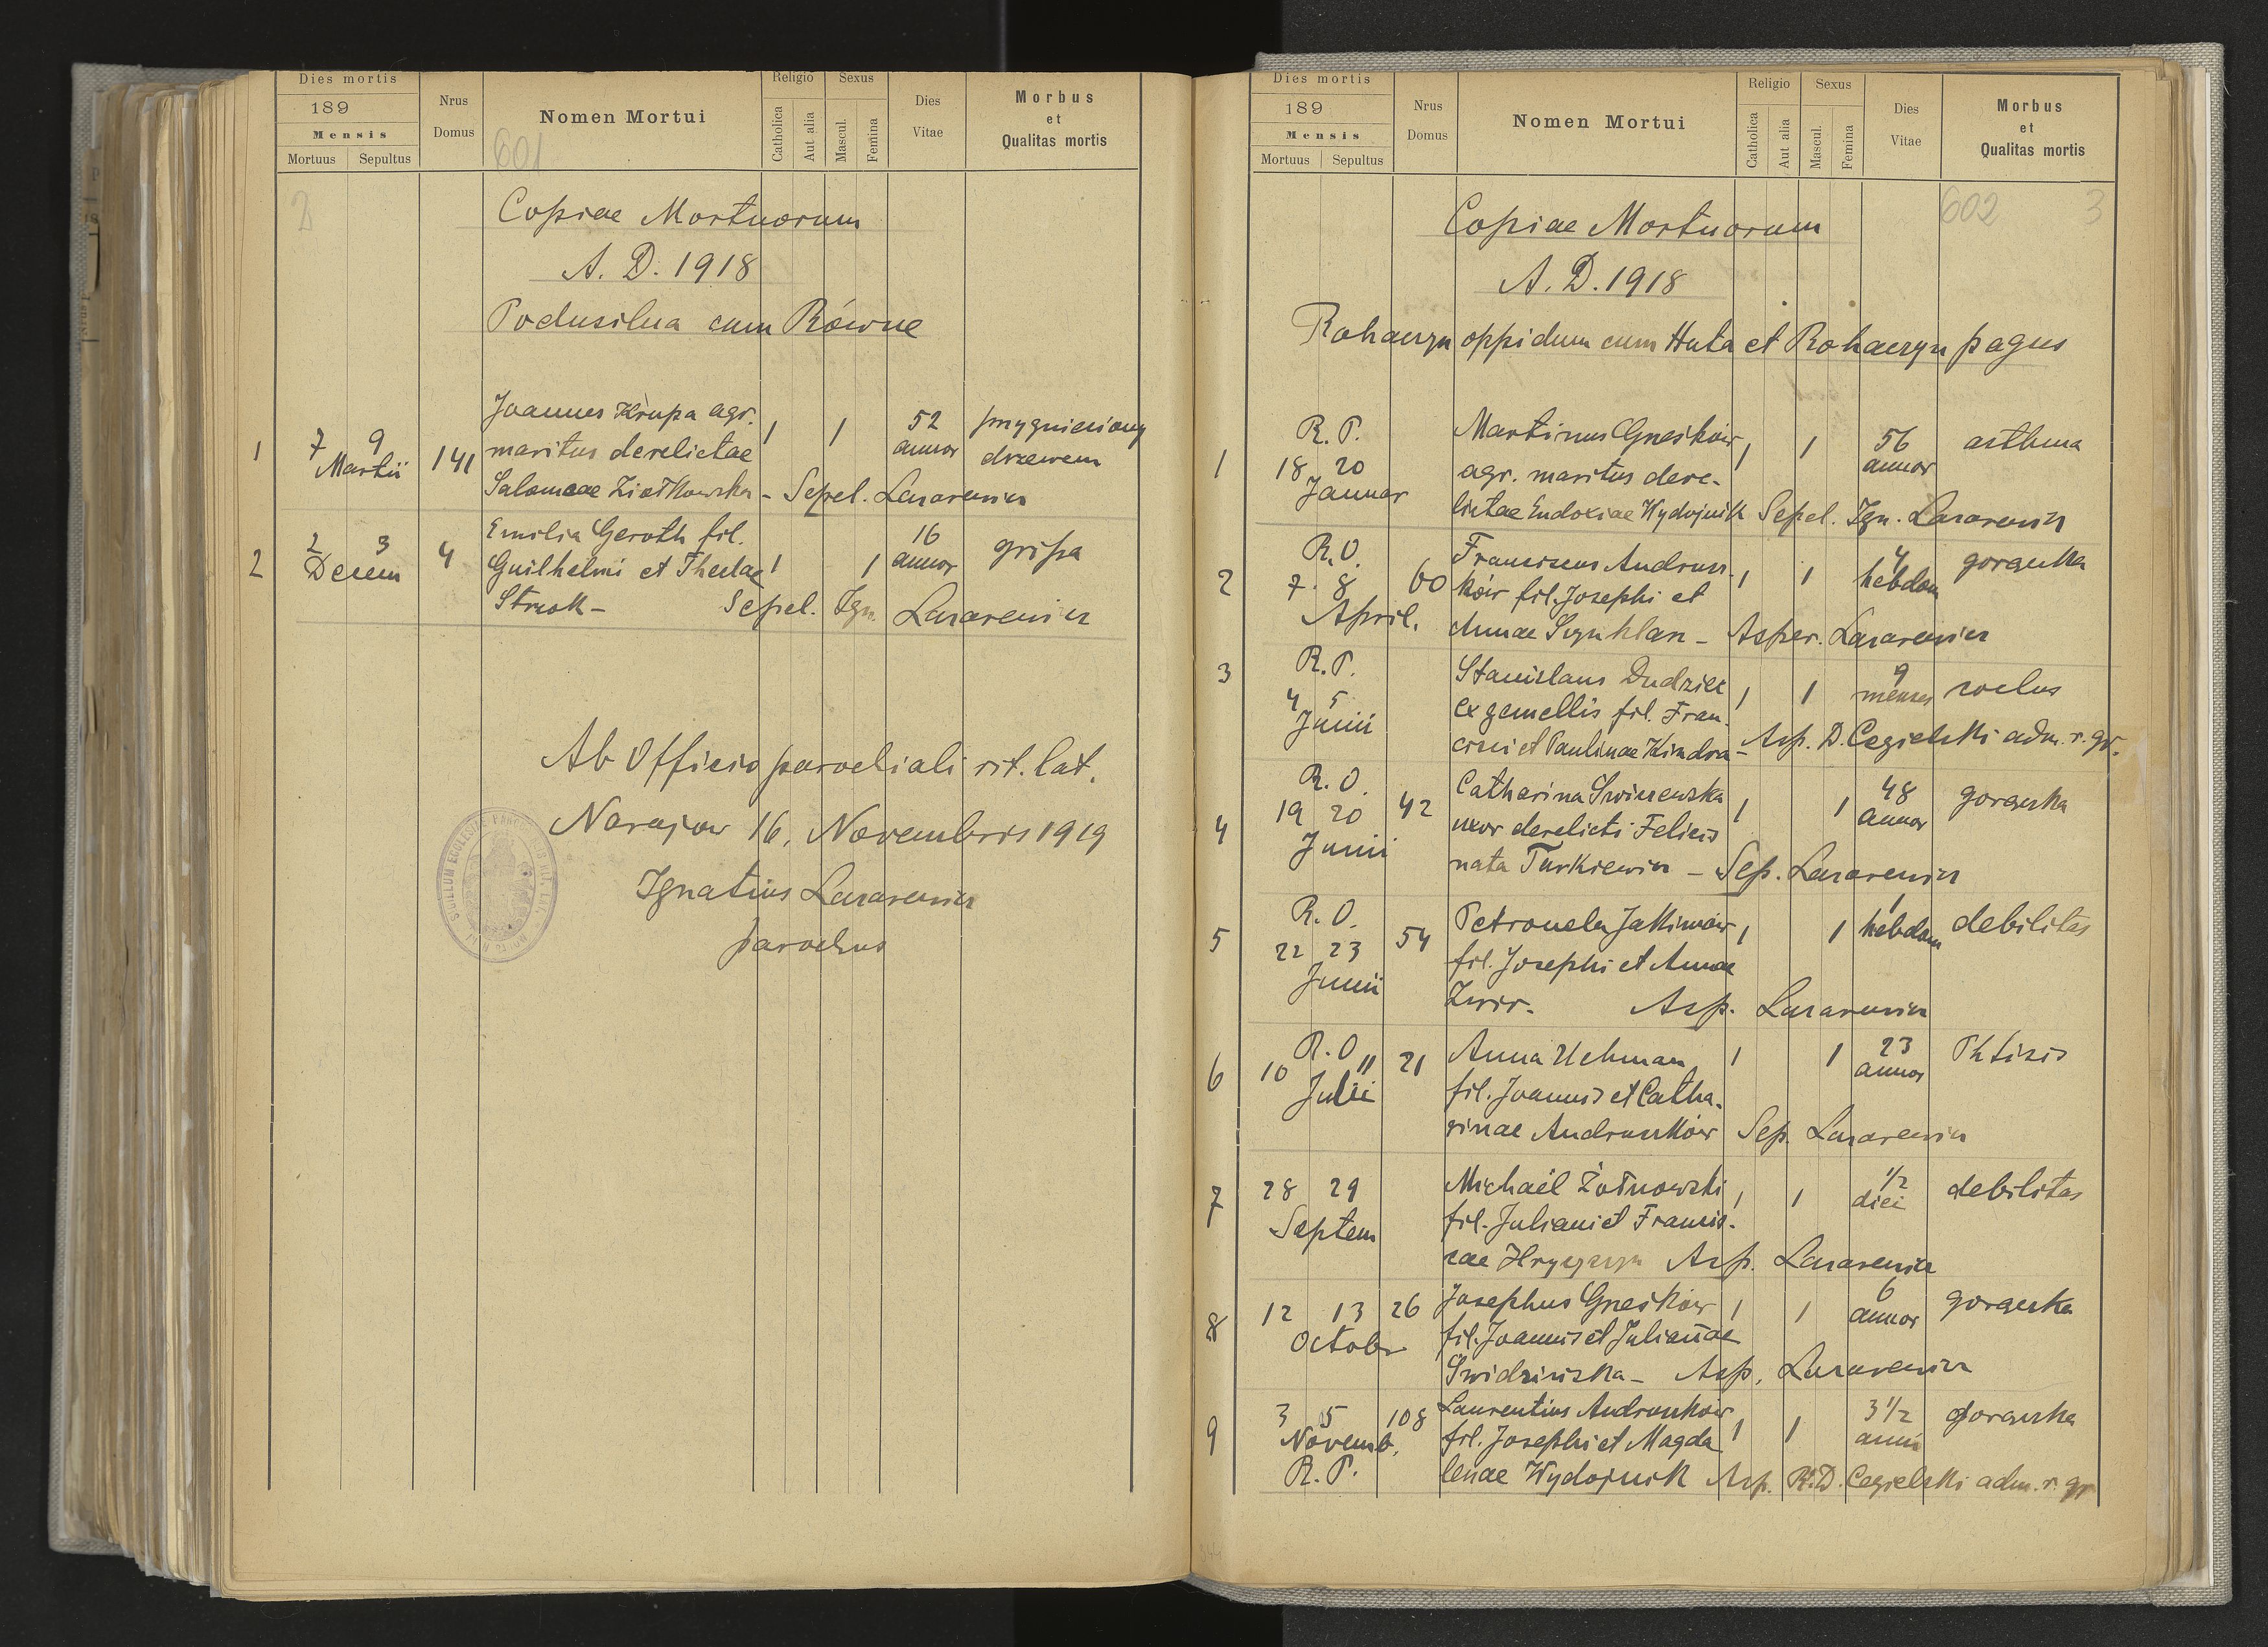 Dies mortis
189
Mensis
Mortuus Sepultus
Nrus
Domus
Nomen Mortui
Religio
Catholica
Aut alia
Sexus
Mascul.
Femina
Dies
Vitae
Morbus
et
Qualitas mortis
601
2
Copiae Mortuorum
A. D. 1918
Podusilna cum Równe
Joannes Krupa agr.
1 7 9 Martii 141 maritus derelictae 1 1 52 annor przygnieciony drzewem
Salomeae Ziołkowska - Sepel. Lazarewicz
Emilia Geroth fil.
2 2 3 Decem 4 Guilhelmi et Theclae 1 1 16 annor gripa
- Sepel. Ign. Lazarewicz
Ab Officio parochiali rit. lat.
Narajow 16. Novembris 1919
Ignatius Lazarewicz
parochus
Dies mortis
189
Mensis
Mortuus Sepultus
Nrus
Domus
Nomen Mortui
Religio
Catholica
Aut alia
Sexus
Mascul.
Femina
Dies
Vitae
Morbus
et
Qualitas mortis
602 3
Copiae Mortuorum
A. D. 1918
Rohaczyn oppidum cum Huta et Rohaczyn pagus
R. P. Martinus Gneśków 1 1 56 annor asthma
1 18 20 Januar agr. maritus dere-
lictae Eudoxiae Wydojnik Sepel. Ign. Lazarewicz
R. O. Franciscus Andrusz- 1 1 4 hebdom gorączka
2 7. 8 April. 60 ków fil. Josephi et
Annae - Asper. Lazarewicz
3 R. P. Stanislaus Dudziec 1 1 9 menses
4 5 Junii ex gemellis fil. Fran-
cisci et Paulinae Kindra - Asp. D. Cegielski adm. r. gr.
R. O. Catharina 1 1 48 annor gorączka
4 19 20 Junii 42 uxor derelicti Felicis
nata Turkiewicz - Sep. Lazarewicz
R. O. Petronela Jakimów 1 1 1 hebdom debilitas
5 22 23 Junii 54 fil. Josephi et Annae
Asp. Lazarewicz
R. O. Anna Uchman 1 1 23 annor Phtisis
6 10 11 Julii 21 fil. Joannis et Catha-
rinae Andruszków Sep. Lazarewicz
Michaël Żołnowski 1 1 1/2 diei debilitas
7 28 29 Septem fil. Juliani et Francis-
cae Asp. Lazarewicz
8 12 13 Octobr 26 Josephus Gneśków 1 1 6 annor gorączka
fil. Joannis et Julianae
Świdzińska - Asp. Lazarewicz
9 3 5 Novemb. 108 Laurentius Andruszków 1 1 3 1/2 anni gorączka
fil. Josephi et Magda
R. P. lenae Wydojnik Asp. R. D. Cegielski adm. r. gr